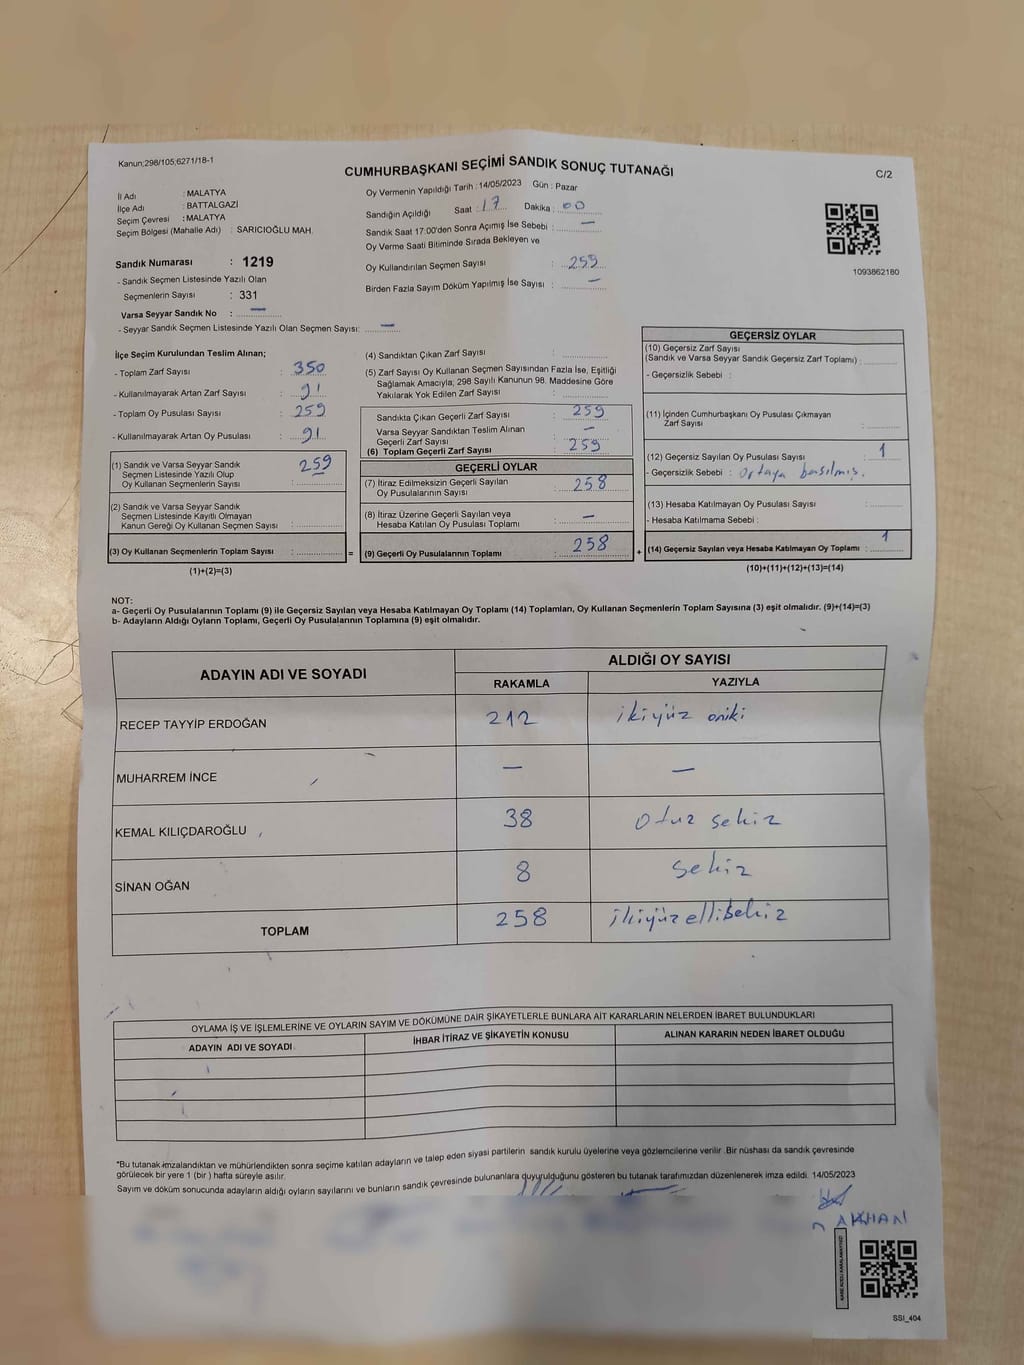 Kanun;298/105,6271/18-1
CUMHURBAŞKANI SEÇİMİ SANDIK SONUÇ TUTANAĞI
C/2
İl Adı : MALATYA
İlçe Adı : BATTALGAZİ
Seçim Çevresi : MALATYA
Seçim Bölgesi (Mahalle Adı) : SARICIOĞLU MAH.
Sandık Numarası : 1219
- Sandık Seçmen Listesinde Yazılı Olan
Seçmenlerin Sayısı : 331
Varsa Seyyar Sandık No : —
- Seyyar Sandık Seçmen Listesinde Yazılı Olan Seçmen Sayısı: —
Oy Vermenin Yapıldığı Tarih : 14/05/2023 Gün : Pazar
Sandığın Açıldığı Saat : 17 Dakika : 00
Sandık Saat 17:00'den Sonra Açımış İse Sebebi : —
Oy Verme Saati Bitiminde Sırada Bekleyen ve
Oy Kullandırılan Seçmen Sayısı : 259
Birden Fazla Sayım Döküm Yapılmış İse Sayısı : —
1093862180
İlçe Seçim Kurulundan Teslim Alınan;
- Toplam Zarf Sayısı : 350
- Kullanılmayarak Artan Zarf Sayısı : 91
- Toplam Oy Pusulası Sayısı : 259
- Kullanılmayarak Artan Oy Pusulası : 91
(1) Sandık ve Varsa Seyyar Sandık
Seçmen Listesinde Yazılı Olup
Oy Kullanan Seçmenlerin Sayısı : 259
(2) Sandık ve Varsa Seyyar Sandık
Seçmen Listesinde Kayıtlı Olmayan
Kanun Gereği Oy Kullanan Seçmen Sayısı :
(3) Oy Kullanan Seçmenlerin Toplam Sayısı : =
(1)+(2)=(3)
(4) Sandıktan Çıkan Zarf Sayısı :
(5) Zarf Sayısı Oy Kullanan Seçmen Sayısından Fazla İse, Eşitliği
Sağlamak Amacıyla; 298 Sayılı Kanunun 98. Maddesine Göre
Yakılarak Yok Edilen Zarf Sayısı :
Sandıkta Çıkan Geçerli Zarf Sayısı : 259
Varsa Seyyar Sandıktan Teslim Alınan
Geçerli Zarf Sayısı : —
(6) Toplam Geçerli Zarf Sayısı : 259
GEÇERLİ OYLAR
(7) İtiraz Edilmeksizin Geçerli Sayılan
Oy Pusulalarının Sayısı : 258
(8) İtiraz Üzerine Geçerli Sayılan veya
Hesaba Katılan Oy Pusulası Toplamı : —
(9) Geçerli Oy Pusulalarının Toplamı : 258 +
GEÇERSİZ OYLAR
(10) Geçersiz Zarf Sayısı
(Sandık ve Varsa Seyyar Sandık Geçersiz Zarf Toplamı) :
- Geçersizlik Sebebi :
(11) İçinden Cumhurbaşkanı Oy Pusulası Çıkmayan
Zarf Sayısı :
(12) Geçersiz Sayılan Oy Pusulası Sayısı : 1
- Geçersizlik Sebebi : Ortaya basılmış.
(13) Hesaba Katılmayan Oy Pusulası Sayısı :
- Hesaba Katılmama Sebebi :
(14) Geçersiz Sayılan veya Hesaba Katılmayan Oy Toplamı : 1
(10)+(11)+(12)+(13)=(14)
NOT:
a- Geçerli Oy Pusulalarının Toplamı (9) ile Geçersiz Sayılan veya Hesaba Katılmayan Oy Toplamı (14) Toplamları, Oy Kullanan Seçmenlerin Toplam Sayısına (3) eşit olmalıdır. (9)+(14)=(3)
b- Adayların Aldığı Oyların Toplamı, Geçerli Oy Pusulalarının Toplamına (9) eşit olmalıdır.
ADAYIN ADI VE SOYADI
ALDIĞI OY SAYISI
RAKAMLA YAZIYLA
RECEP TAYYİP ERDOĞAN 212 ikiyüz oniki
MUHARREM İNCE — —
KEMAL KILIÇDAROĞLU 38 otuz sekiz
SİNAN OĞAN 8 sekiz
TOPLAM 258 ikiyüzellisekiz
OYLAMA İŞ VE İŞLEMLERİNE VE OYLARIN SAYIM VE DÖKÜMÜNE DAİR ŞİKAYETLERLE BUNLARA AİT KARARLARIN NELERDEN İBARET BULUNDUKLARI
ADAYIN ADI VE SOYADI İHBAR İTİRAZ VE ŞİKAYETİN KONUSU ALINAN KARARIN NEDEN İBARET OLDUĞU
*Bu tutanak imzalandıktan ve mühürlendikten sonra seçime katılan adayların ve talep eden siyasi partilerin sandık kurulu üyelerine veya gözlemcilerine verilir. Bir nüshası da sandık çevresinde
görülecek bir yere 1 (bir) hafta süreyle asılır.
Sayım ve döküm sonucunda adayların aldığı oyların sayılarını ve bunların sandık çevresinde bulunanlara duyurulduğunu gösteren bu tutanak tarafımızdan düzenlenerek imza edildi. 14/05/2023
AKHAN
SSI_404